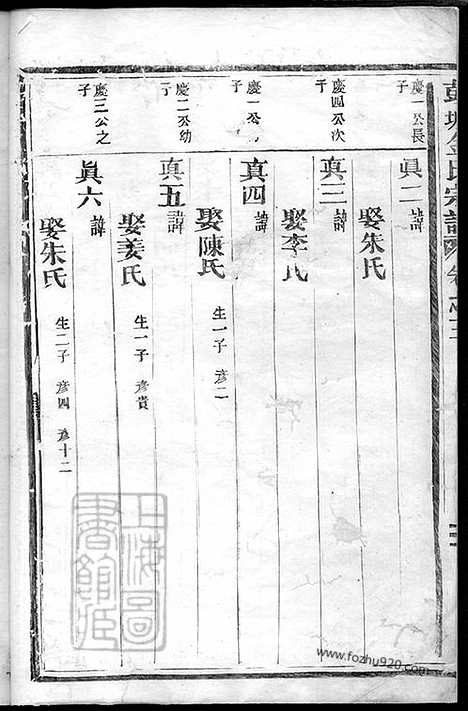 彭城金氏宗譜 卷之三
慶一公長子
眞二 諱
娶朱氏
慶四公次子
真三 諱
娶李氏
慶一公
子
真四 諱
娶陳氏 生一子 彦二
慶二公幼子
真五 諱
娶姜氏 生一子 彦貴
慶三公之子
眞六 諱
娶朱氏 生二子 彦四 彦十二
上海圖書館藏
www.fozhu920.com